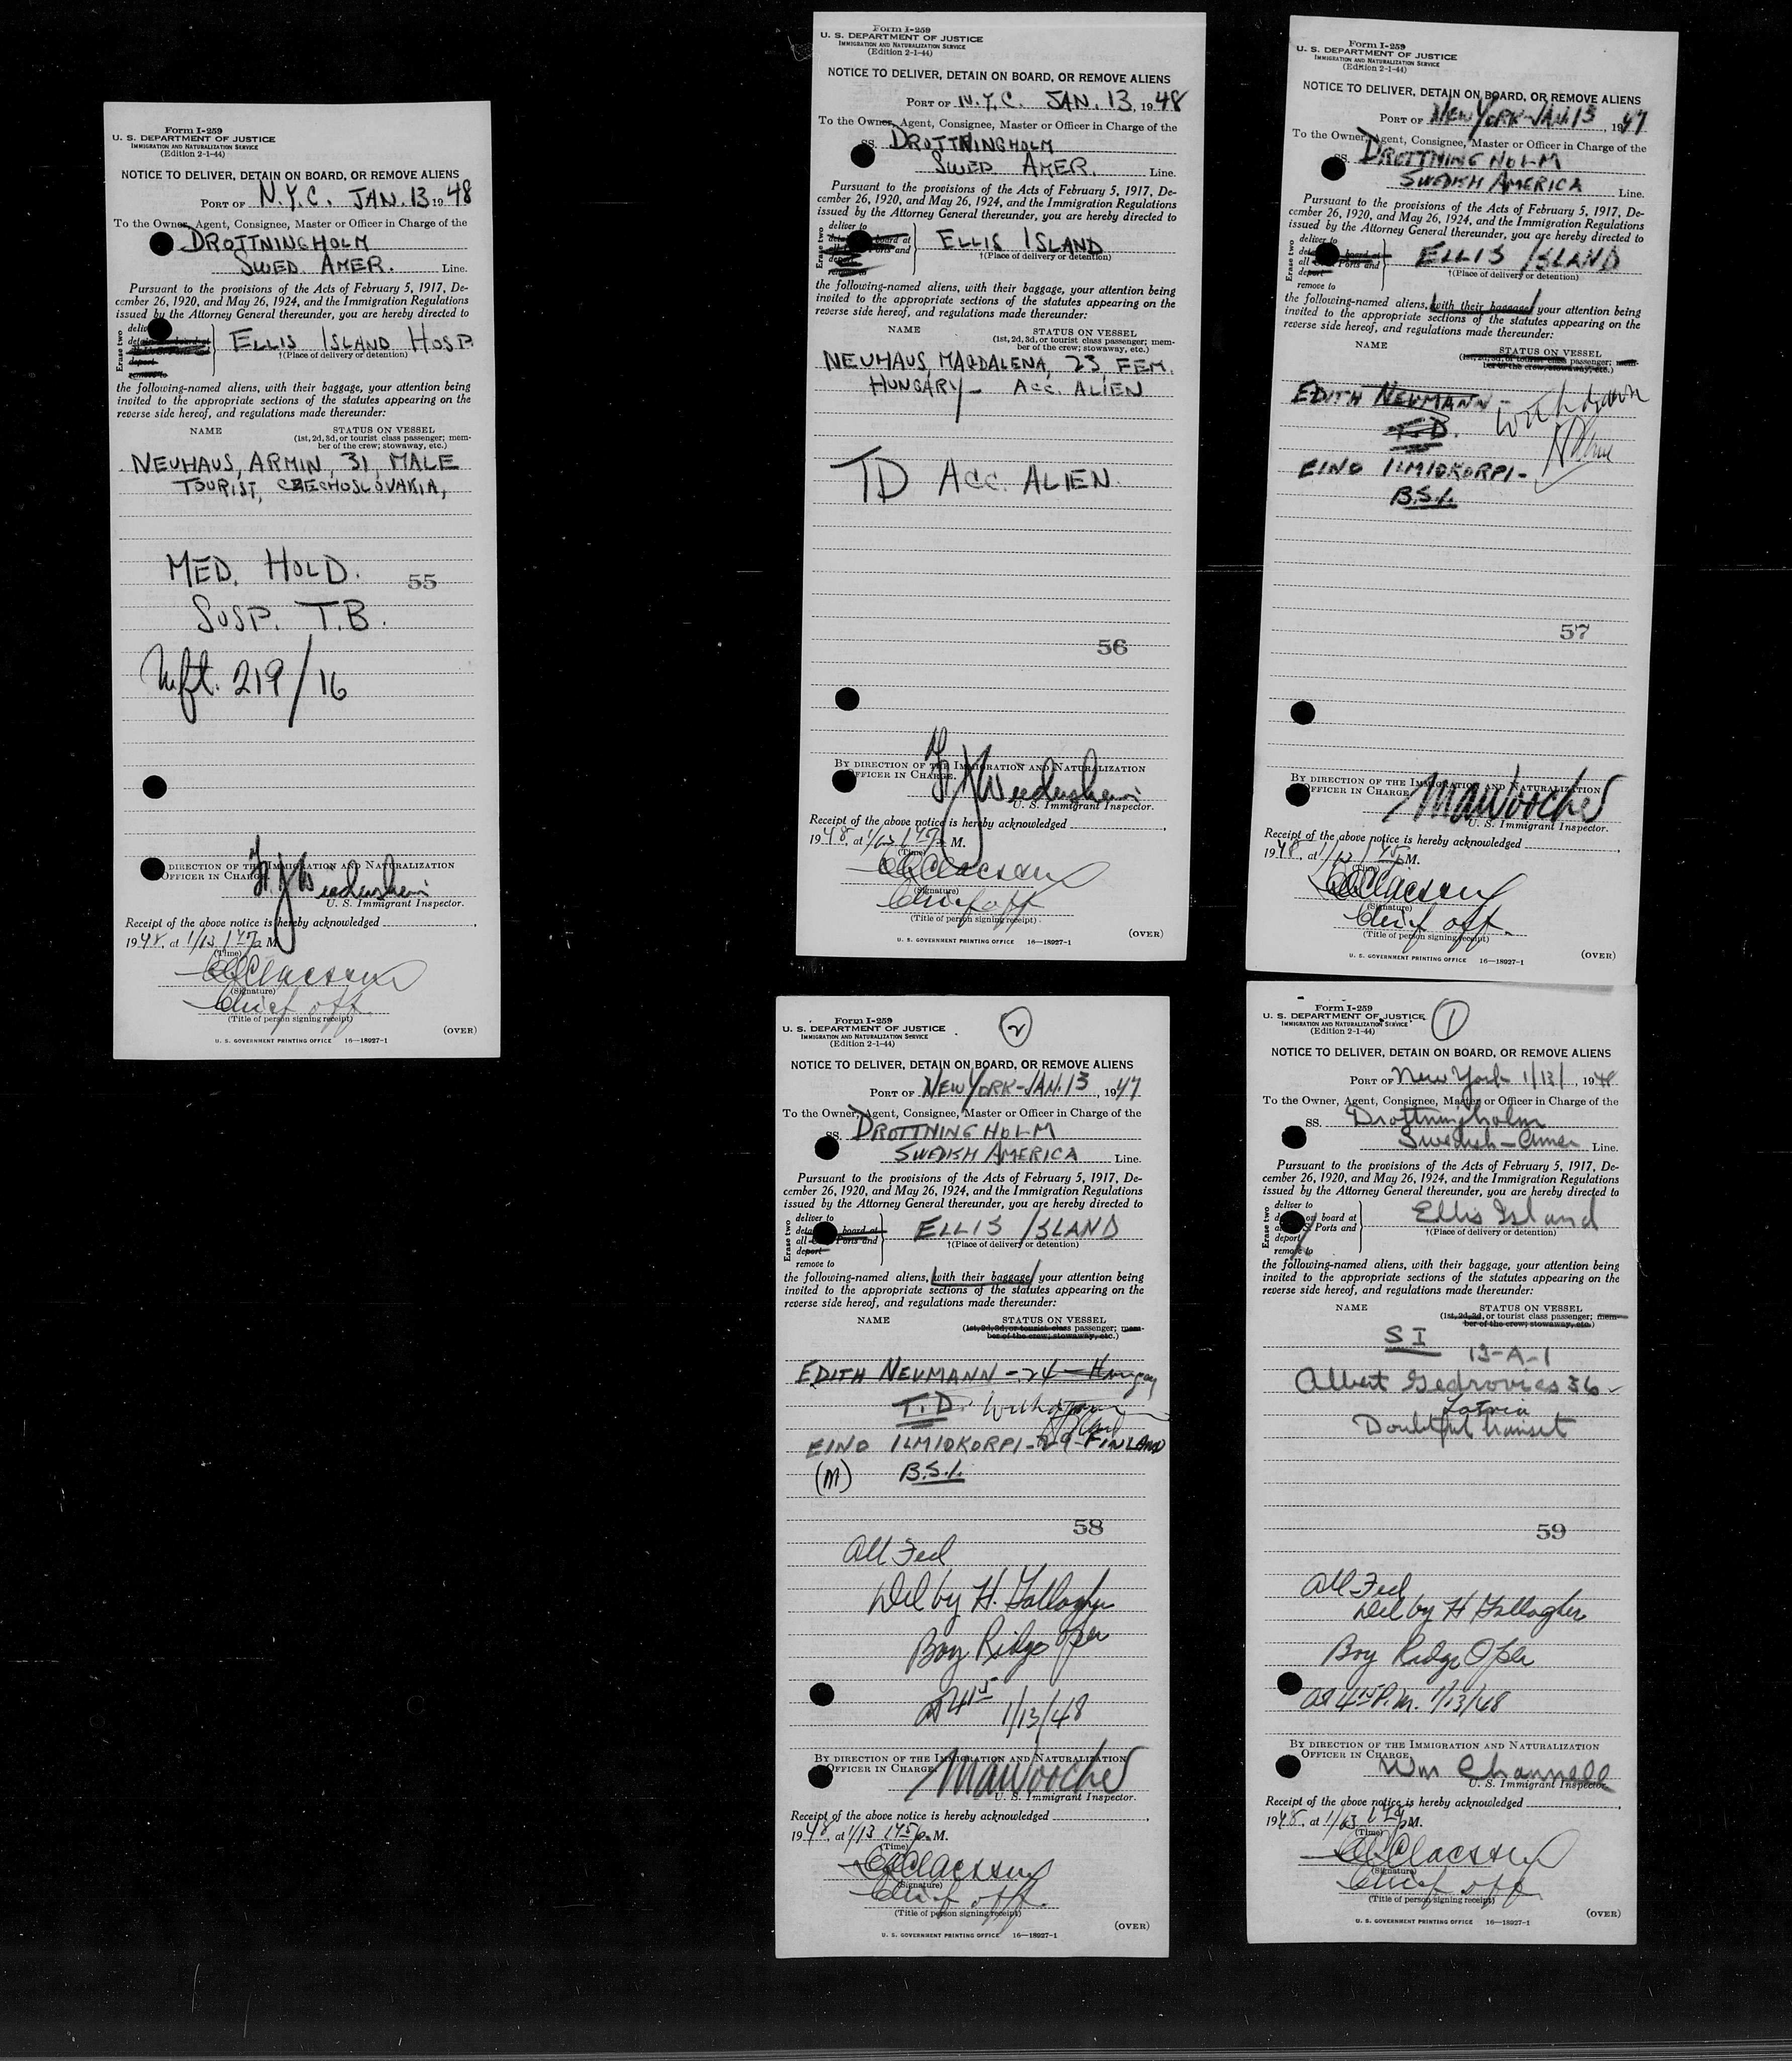 Form I-259
U. S. DEPARTMENT OF JUSTICE
IMMIGRATION AND NATURALIZATION SERVICE
(Edition 2-1-44)
NOTICE TO DELIVER, DETAIN ON BOARD, OR REMOVE ALIENS
PORT OF N.Y.C. JAN. 13 1948
To the Owner, Agent, Consignee, Master or Officer in Charge of the
DROTTNINGHOLM
SWED. AMER. Line.
Pursuant to the provisions of the Acts of February 5, 1917, De-
cember 26, 1920, and May 26, 1924, and the Immigration Regulations
issued by the Attorney General thereunder, you are hereby directed to
Erase two
ELLIS ISLAND HOSP.
†(Place of delivery or detention)
the following-named aliens, with their baggage, your attention being
invited to the appropriate sections of the statutes appearing on the
reverse side hereof, and regulations made thereunder:
NAME STATUS ON VESSEL
(1st, 2d, 3d, or tourist class passenger; mem-
ber of the crew; stowaway, etc.)
NEUHAUS, ARMIN, 31, MALE
TOURIST, CZECHOSLOVAKIA,
MED. HOLD. 55
SUSP. T.B.
219/16
DIRECTION OF THE IMMIGRATION AND NATURALIZATION
OFFICER IN CHARGE.
U. S. Immigrant Inspector.
Receipt of the above notice is hereby acknowledged
1948, at 1/13 1 45 p M.
(Time)
Claesson
(Signature)
Chief off.
(Title of person signing receipt)
(OVER)
U. S. GOVERNMENT PRINTING OFFICE 16—18927-1
Form I-259
U. S. DEPARTMENT OF JUSTICE
IMMIGRATION AND NATURALIZATION SERVICE
(Edition 2-1-44)
NOTICE TO DELIVER, DETAIN ON BOARD, OR REMOVE ALIENS
PORT OF N.Y.C. JAN. 13, 1948
To the Owner, Agent, Consignee, Master or Officer in Charge of the
SS. DROTTNINGHOLM
SWED. AMER. Line.
Pursuant to the provisions of the Acts of February 5, 1917, De-
cember 26, 1920, and May 26, 1924, and the Immigration Regulations
issued by the Attorney General thereunder, you are hereby directed to
Erase two
deliver to
board at
Ports and
remove to
ELLIS ISLAND
†(Place of delivery or detention)
the following-named aliens, with their baggage, your attention being
invited to the appropriate sections of the statutes appearing on the
reverse side hereof, and regulations made thereunder:
NAME STATUS ON VESSEL
(1st, 2d, 3d, or tourist class passenger; mem-
ber of the crew; stowaway, etc.)
NEUHAUS, MAGDALENA, 23 FEM.
HUNGARY - ACC. ALIEN
TD ACC. ALIEN.
56
BY DIRECTION OF THE IMMIGRATION AND NATURALIZATION
OFFICER IN CHARGE.
U. S. Immigrant Inspector.
Receipt of the above notice is hereby acknowledged
1948, at 1/13 1 45 p M.
(Time)
Claesson
(Signature)
Chief off
(Title of person signing receipt)
(OVER)
U. S. GOVERNMENT PRINTING OFFICE 16—18927-1
Form I-259
U. S. DEPARTMENT OF JUSTICE
IMMIGRATION AND NATURALIZATION SERVICE
(Edition 2-1-44)
NOTICE TO DELIVER, DETAIN ON BOARD, OR REMOVE ALIENS
PORT OF NEW YORK - JAN. 13, 1947
To the Owner, Agent, Consignee, Master or Officer in Charge of the
SS. DROTTNINGHOLM
SWEDISH AMERICA Line.
Pursuant to the provisions of the Acts of February 5, 1917, De-
cember 26, 1920, and May 26, 1924, and the Immigration Regulations
issued by the Attorney General thereunder, you are hereby directed to
Erase two
deliver to
board at
all Ports and
deport
remove to
ELLIS ISLAND
†(Place of delivery or detention)
the following-named aliens, with their baggage, your attention being
invited to the appropriate sections of the statutes appearing on the
reverse side hereof, and regulations made thereunder:
NAME STATUS ON VESSEL
(1st, 2d, 3d, or tourist class passenger; mem-
ber of the crew; stowaway, etc.)
EDITH NEUMANN - withdrawn
T.D.
EINO ILMIOKORPI -
B.S.I.
57
BY DIRECTION OF THE IMMIGRATION AND NATURALIZATION
OFFICER IN CHARGE
U. S. Immigrant Inspector.
Receipt of the above notice is hereby acknowledged
1948, at 1/13 1 45 p M.
Claesson
(Signature)
Chief off.
(Title of person signing receipt)
(OVER)
U. S. GOVERNMENT PRINTING OFFICE 16—18927-1
Form I-259 2
U. S. DEPARTMENT OF JUSTICE
IMMIGRATION AND NATURALIZATION SERVICE
(Edition 2-1-44)
NOTICE TO DELIVER, DETAIN ON BOARD, OR REMOVE ALIENS
PORT OF NEW YORK - JAN. 13, 1947
To the Owner, Agent, Consignee, Master or Officer in Charge of the
SS. DROTTNINGHOLM
SWEDISH AMERICA Line.
Pursuant to the provisions of the Acts of February 5, 1917, De-
cember 26, 1920, and May 26, 1924, and the Immigration Regulations
issued by the Attorney General thereunder, you are hereby directed to
Erase two
deliver to
board at
all Ports and
deport
remove to
ELLIS ISLAND
†(Place of delivery or detention)
the following-named aliens, with their baggage, your attention being
invited to the appropriate sections of the statutes appearing on the
reverse side hereof, and regulations made thereunder:
NAME STATUS ON VESSEL
(1st, 2d, 3d, or tourist class passenger; mem-
ber of the crew; stowaway, etc.)
EDITH NEUMANN - 24 - Hungary
T.D. Withdrawn
EINO ILMIOKORPI - 29 - FINLAND
(M) B.S.I.
58
All Fed
Del by H. Gallagher
Bay Ridge Oper
at 4 15 1/13/48
BY DIRECTION OF THE IMMIGRATION AND NATURALIZATION
OFFICER IN CHARGE.
U. S. Immigrant Inspector.
Receipt of the above notice is hereby acknowledged
1948, at 1/13 1 45 p. M.
(Time)
Claesson
(Signature)
Chief off.
(Title of person signing receipt)
(OVER)
U. S. GOVERNMENT PRINTING OFFICE 16—18927-1
Form I-259 1
U. S. DEPARTMENT OF JUSTICE
IMMIGRATION AND NATURALIZATION SERVICE
(Edition 2-1-44)
NOTICE TO DELIVER, DETAIN ON BOARD, OR REMOVE ALIENS
PORT OF New York 1/13/, 1948
To the Owner, Agent, Consignee, Master or Officer in Charge of the
SS. Drottningholm
Swedish - Amer Line.
Pursuant to the provisions of the Acts of February 5, 1917, De-
cember 26, 1920, and May 26, 1924, and the Immigration Regulations
issued by the Attorney General thereunder, you are hereby directed to
Erase two
deliver to
on board at
Ports and
deport
remove to
Ellis Island
†(Place of delivery or detention)
the following-named aliens, with their baggage, your attention being
invited to the appropriate sections of the statutes appearing on the
reverse side hereof, and regulations made thereunder:
NAME STATUS ON VESSEL
(1st, 2d, 3d, or tourist class passenger; mem-
ber of the crew; stowaway, etc.)
SI 13-A-1
Albert Gedrovics 36
Latvia
Doubtful transit
59
All Fed
Del by H Gallagher
Bay Ridge Oper
at 4 15 P.M. 1/13/48
BY DIRECTION OF THE IMMIGRATION AND NATURALIZATION
OFFICER IN CHARGE.
Wm Channell
U. S. Immigrant Inspector.
Receipt of the above notice is hereby acknowledged
1948, at 1/13 1 45 p M.
(Time)
Claesson
(Signature)
Chief off
(Title of person signing receipt)
(OVER)
U. S. GOVERNMENT PRINTING OFFICE 16—18927-1